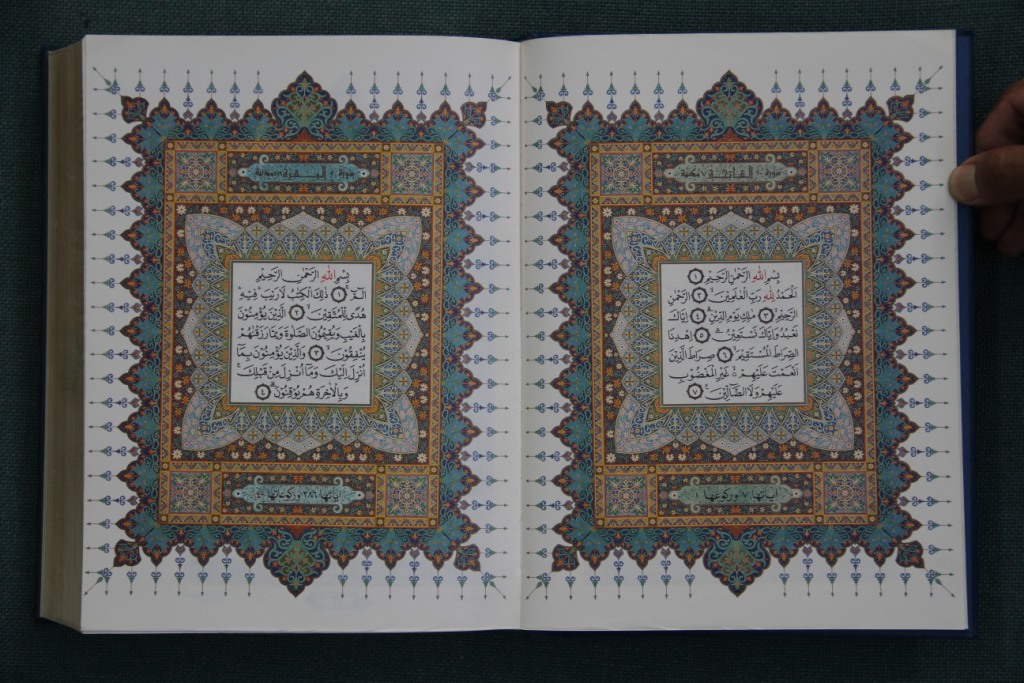 سورة الفاتحة ٧ مكية
بِسْمِ اللّٰهِ الرَّحْمٰنِ الرَّحِيْمِ ١
اَلْحَمْدُ لِلّٰهِ رَبِّ الْعٰلَمِيْنَ ٢ الرَّحْمٰنِ
الرَّحِيْمِ ٣ مٰلِكِ يَوْمِ الدِّيْنِ ٤ اِيَّاكَ
نَعْبُدُ وَاِيَّاكَ نَسْتَعِيْنُ ٥ اِهْدِنَا
الصِّرَاطَ الْمُسْتَقِيْمَ ٦ صِرَاطَ الَّذِيْنَ
اَنْعَمْتَ عَلَيْهِمْ غَيْرِ الْمَغْضُوْبِ
عَلَيْهِمْ وَلَا الضَّآلِّيْنَ ٧
اٰیاتها ٧ وركوعها ١
سورة البقرة
بِسْمِ اللّٰهِ الرَّحْمٰنِ الرَّحِيْمِ
الٓمّٓ ١ ذٰلِكَ الْكِتٰبُ لَا رَيْبَ فِيْهِ
هُدًى لِّلْمُتَّقِيْنَ ٢ الَّذِيْنَ يُؤْمِنُوْنَ
بِالْغَيْبِ وَيُقِيْمُوْنَ الصَّلٰوةَ وَمِمَّا رَزَقْنٰهُمْ
يُنْفِقُوْنَ ٣ وَالَّذِيْنَ يُؤْمِنُوْنَ بِمَآ
اُنْزِلَ اِلَيْكَ وَمَآ اُنْزِلَ مِنْ قَبْلِكَ
وَبِالْاٰخِرَةِ هُمْ يُوْقِنُوْنَ ٤
اٰیاتها ٢٨٦ وركوعاتها